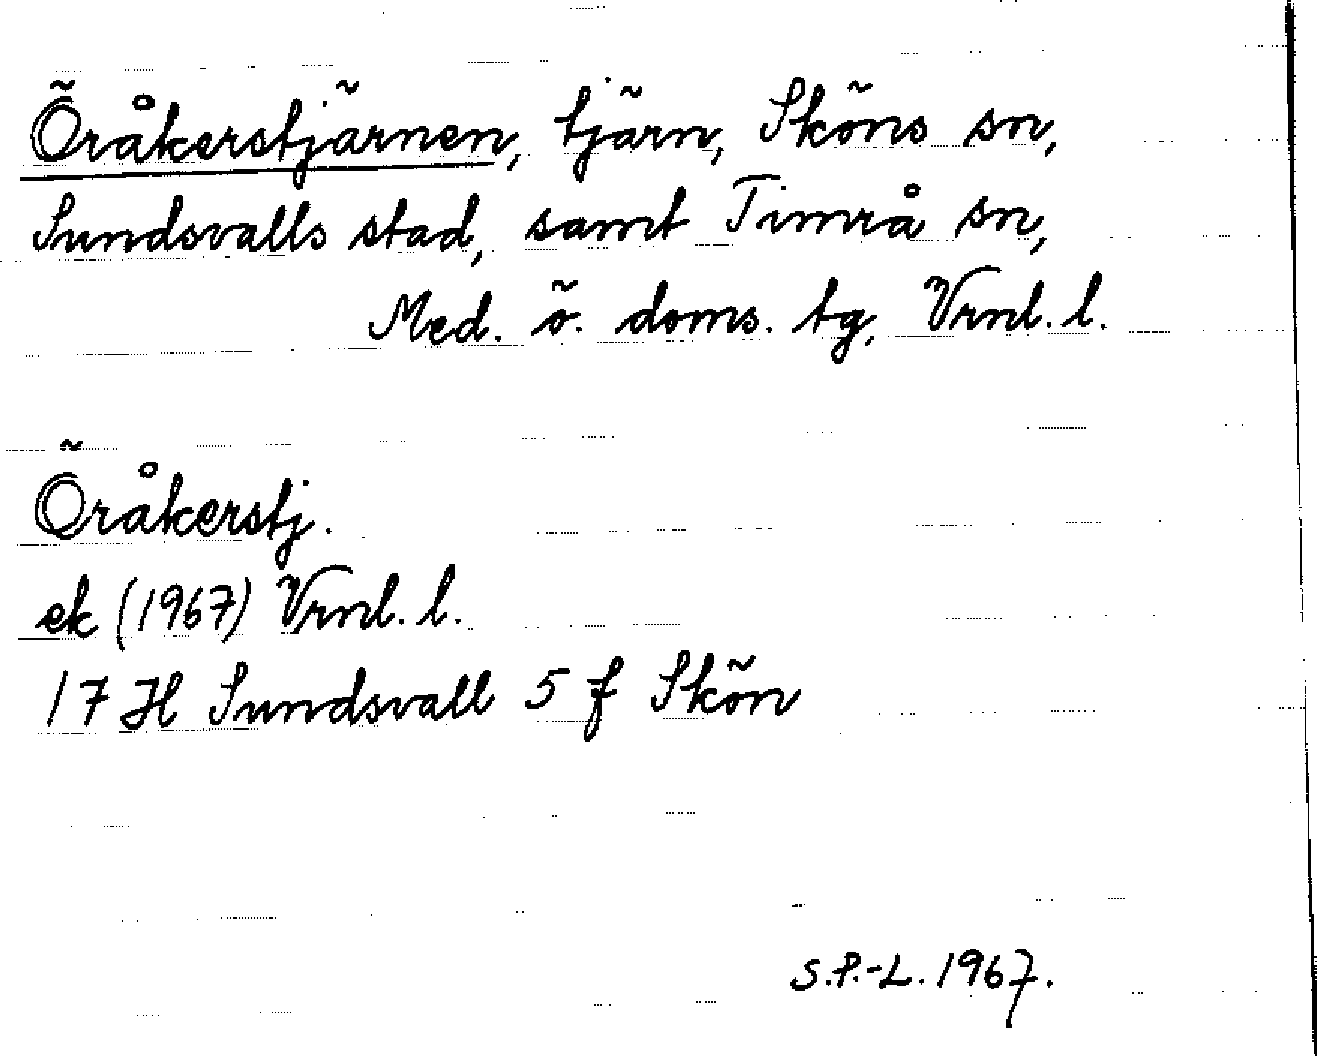 Öråkerstjärnen, tjärn, Sköns sn,
Sundsvalls stad, samt Timrå sn,
Med. ö. doms. tg, Vrnl. l.
Öråkerstj.
ek (1967) Vrnl. l.
17 H Sundsvall 5 f Skön
S.P.-L. 1967.